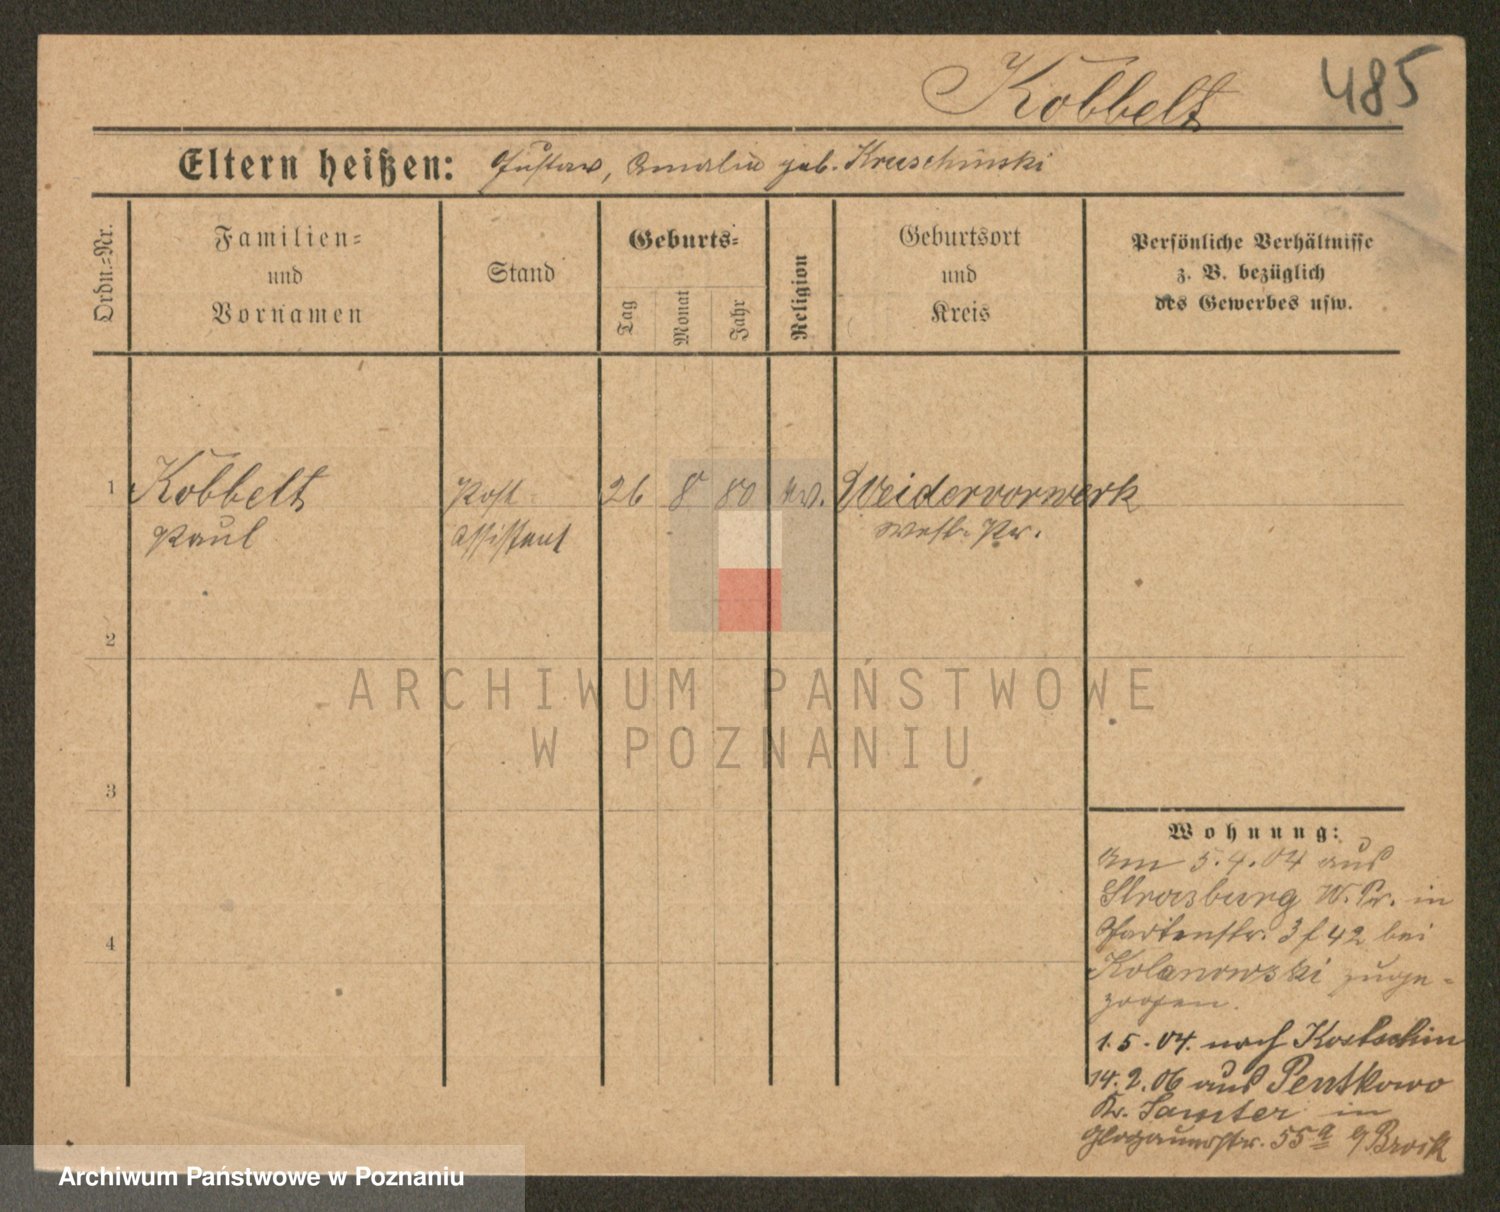 Köbbelt
485
Eltern heißen: Gustav, Amalie geb. Kruschinski
Ordn.-Nr.
Familien-
und
Vornamen
Stand
Geburts-
Tag
Monat
Jahr
Religion
Geburtsort
und
Kreis
Persönliche Verhältnisse
z. B. bezüglich
des Gewerbes usw.
1 Köbbelt Post- 26 8 80 ev. Weidervorwerk
Paul Assistent Westr. Pr.
2
3
4
Wohnung:
Am 5.4.04 aus
Strasburg W. Pr. in
Gartenstr. 3 f 42 bei
Kolanowski zuge-
zogen.
1.5.04. nach Kostschin
14.2.06 aus Pentkowo
Kr. Samter in
Glogauerstr. 55a
ARCHIWUM PAŃSTWOWE
W POZNANIU
Archiwum Państwowe w Poznaniu